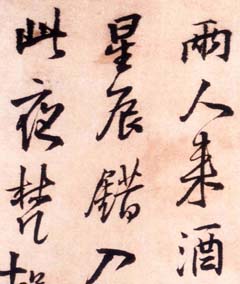 兩人来酒
星辰錯入
此夜楚